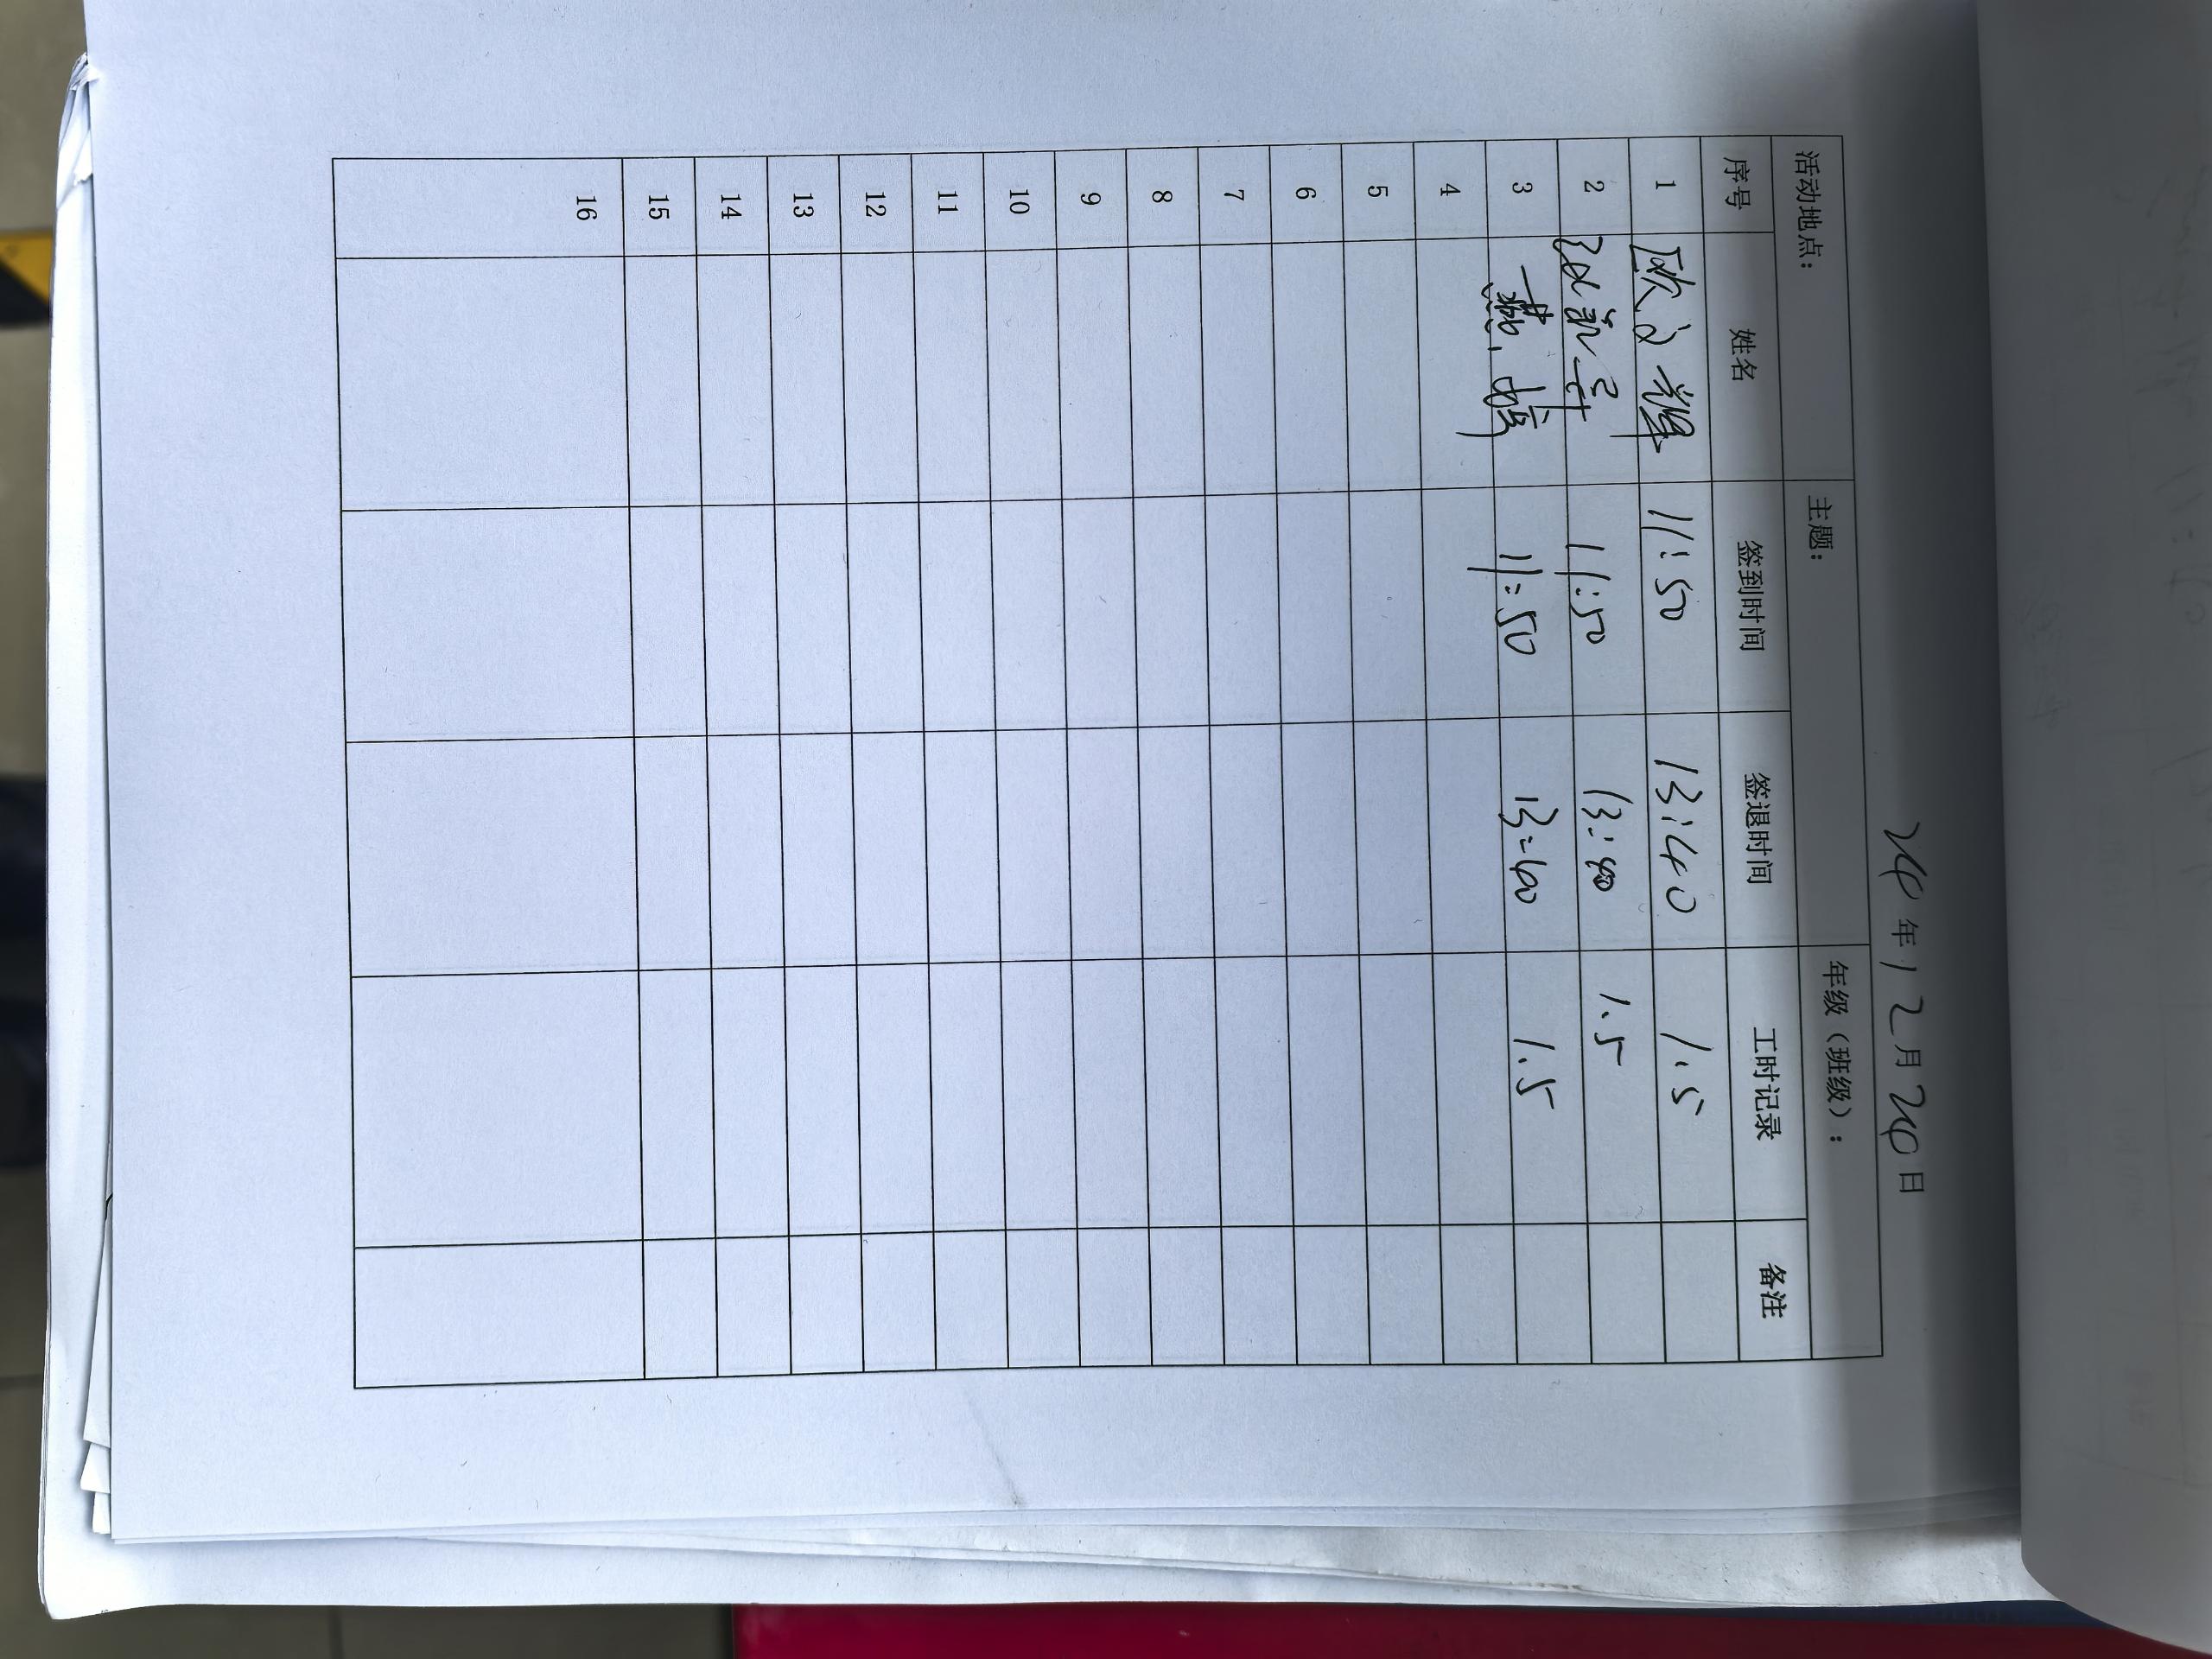 24年12月24日
活动地点： 主题： 年级（班级）：
序号 姓名 签到时间 签退时间 工时记录 备注
1 欧文耀 11:50 13:40 1.5
2 11:50 13:40 1.5
3 11:50 13:40 1.5
4
5
6
7
8
9
10
11
12
13
14
15
16